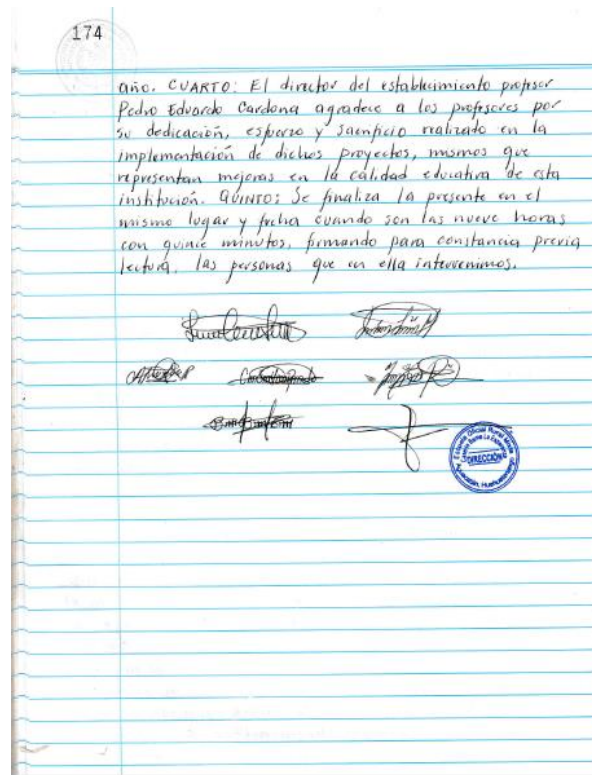 174
año. CUARTO: El director del establecimiento profesor
Pedro Eduardo Cardona agradece a los profesores por
su dedicación, esfuerzo y sacrificio realizado en la
implementación de dichos proyectos, mismos que
representan mejoras en la calidad educativa de esta
institución. QUINTO: Se finaliza la presente en el
mismo lugar y fecha cuando son las nueve horas
con quince minutos, firmando para constancia previa
lectura, las personas que en ella intervenimos.
Escuela Oficial Rural Mixta
DIRECCIÓN